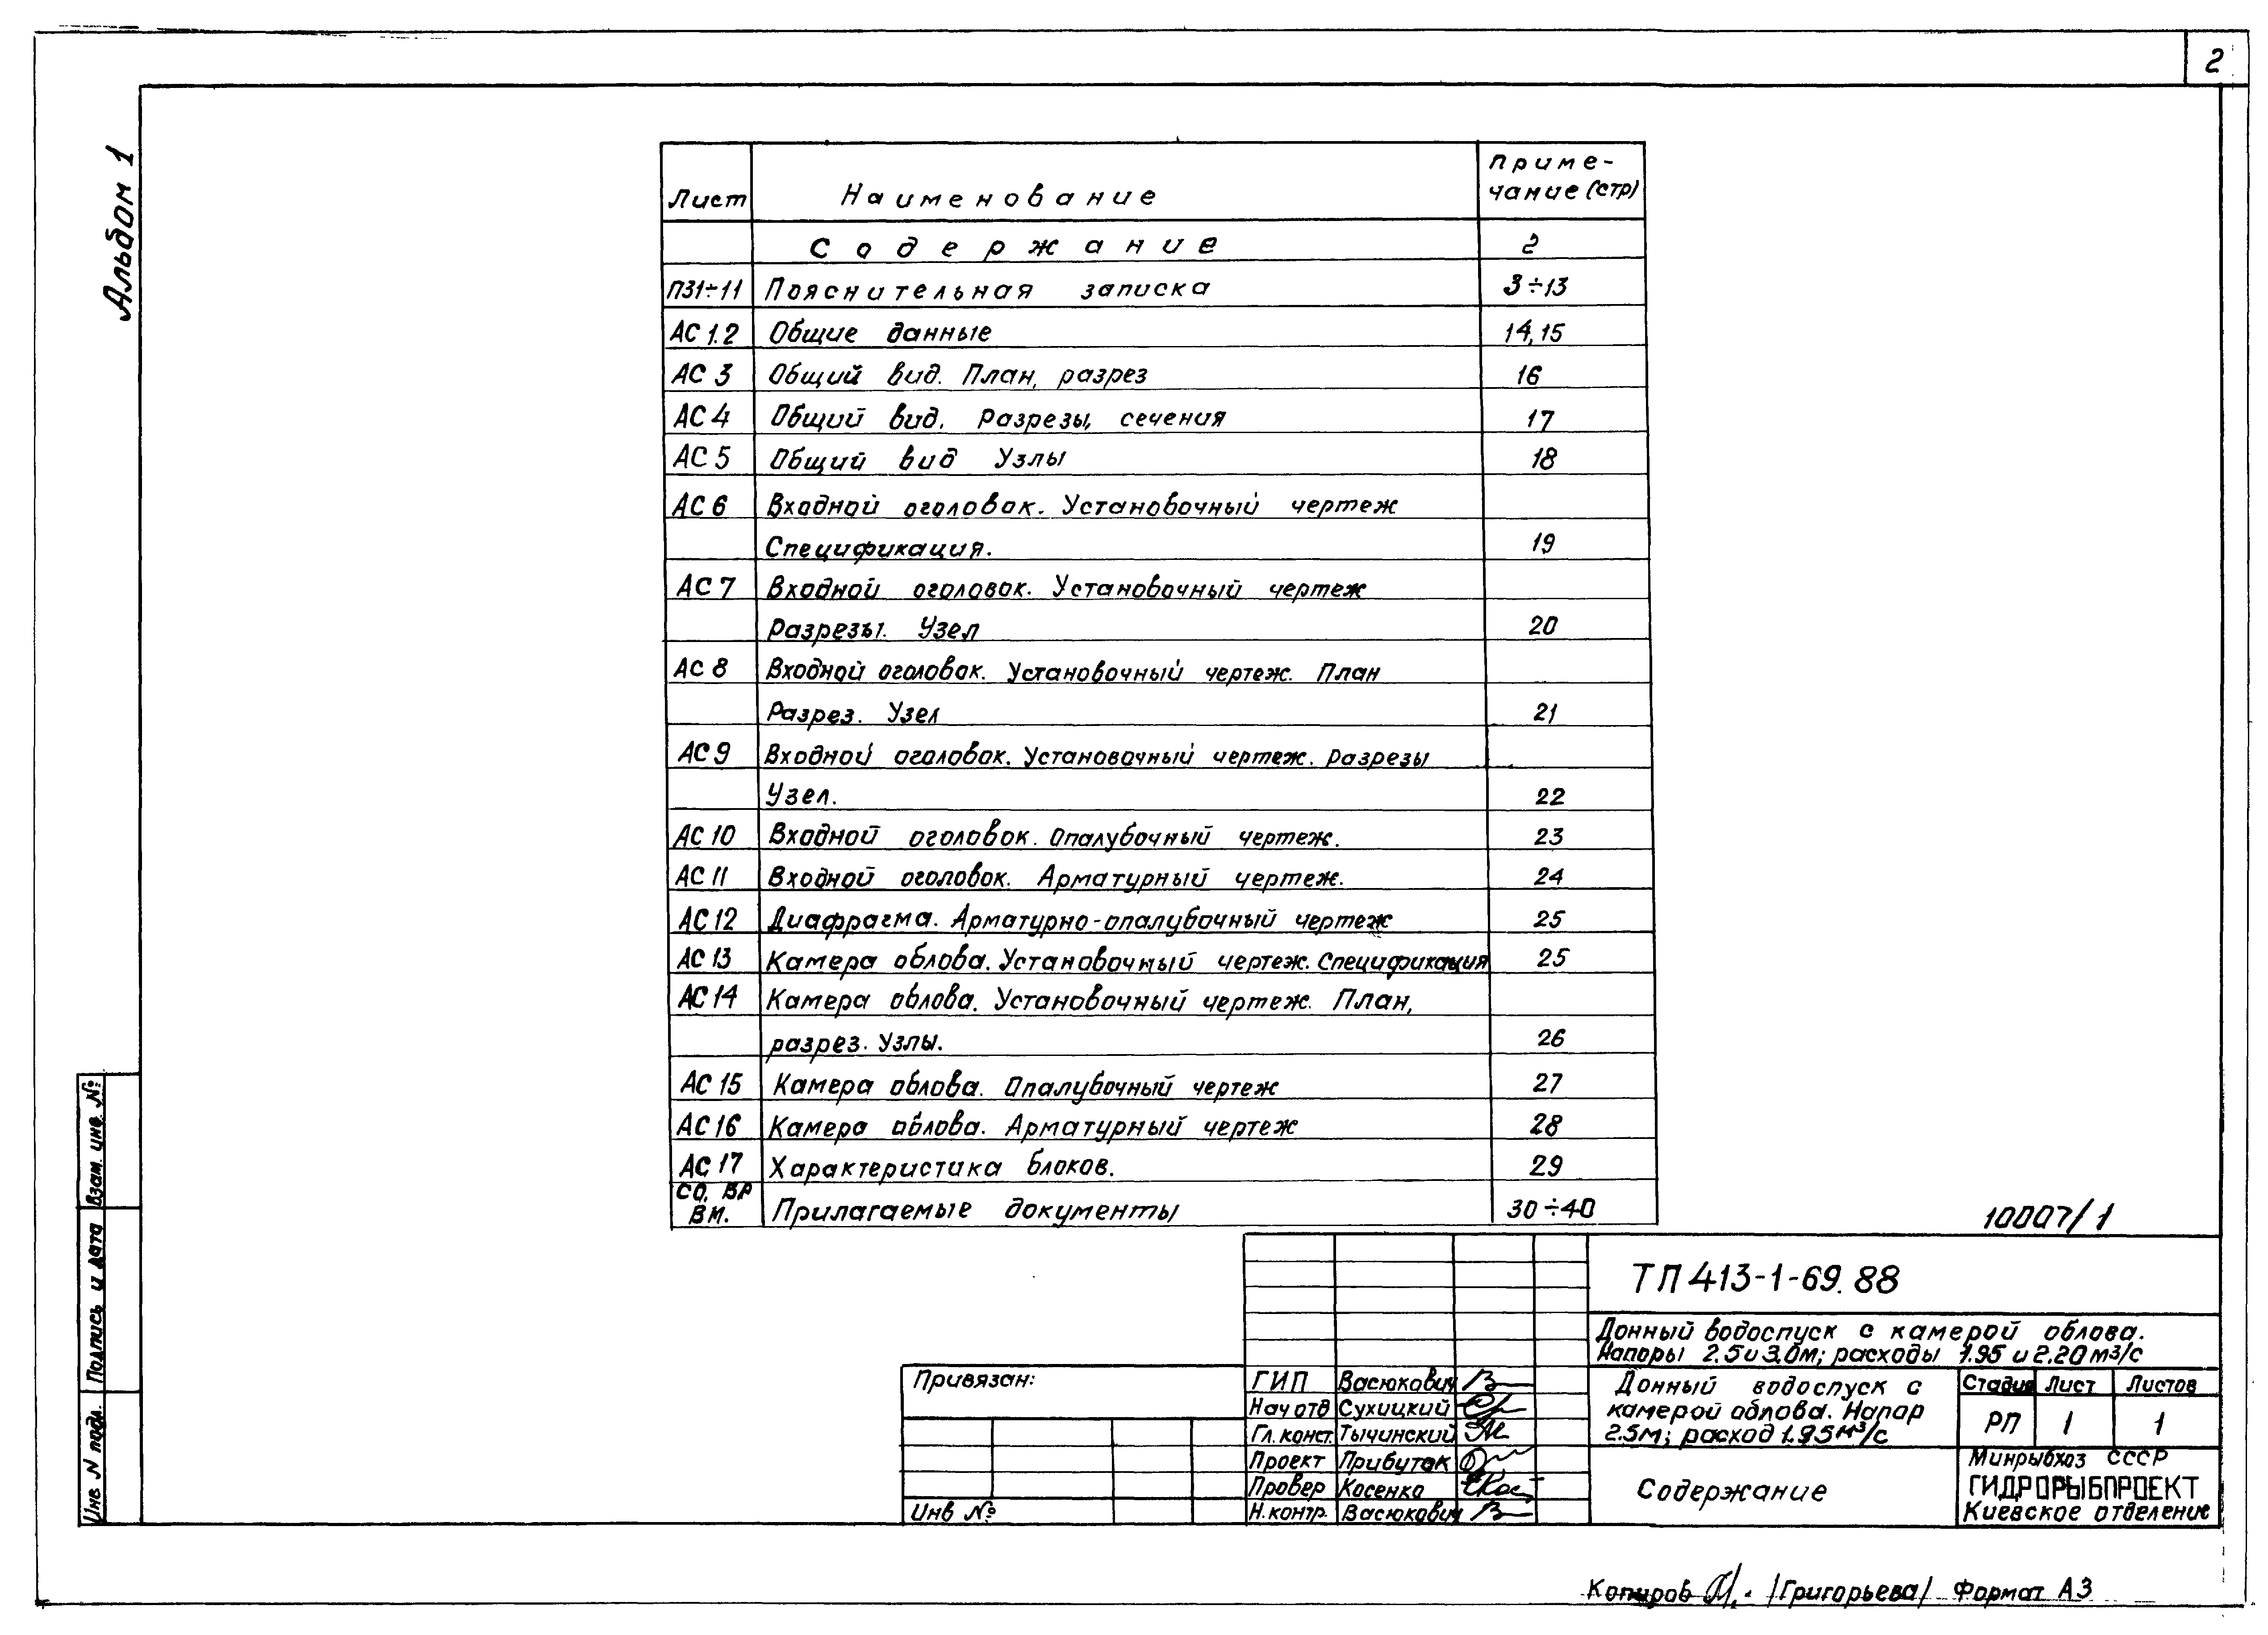 2
Альбом 1
Лист Наименование Приме-
чание (стр)
Содержание 2
ПЗ1÷11 Пояснительная записка 3÷13
АС 1.2 Общие данные 14,15
АС 3 Общий вид. План, разрез 16
АС 4 Общий вид. Разрезы, сечения 17
АС 5 Общий вид Узлы 18
АС 6 Входной оголовок. Установочный чертеж
Спецификация. 19
АС 7 Входной оголовок. Установочный чертеж
Разрезы. Узел 20
АС 8 Входной оголовок. Установочный чертеж. План
Разрез. Узел 21
АС 9 Входной оголовок. Установочный чертеж. Разрезы
Узел. 22
АС 10 Входной оголовок. Опалубочный чертеж. 23
АС 11 Входной оголовок. Арматурный чертеж. 24
АС 12 Диафрагма. Арматурно-опалубочный чертеж 25
АС 13 Камера облова. Установочный чертеж. Спецификация 25
АС 14 Камера облова. Установочный чертеж. План,
разрез. Узлы. 26
АС 15 Камера облова. Опалубочный чертеж 27
АС 16 Камера облова. Арматурный чертеж 28
АС 17 Характеристика блоков. 29
СО, ВР
ВМ. Прилагаемые документы 30÷40
10007/1
ТП 413-1-69.88
Донный водоспуск с камерой облова.
Напоры 2.5 и 3.0м; расходы 1.95 и 2.20 м³/с
Привязан:
Инв №
ГИП Васюкович
Нач отд Сухицкий
Гл. конст. Тычинский
Проект Прибуток
Провер Косенко
Н. контр. Васюкович
Донный водоспуск с
камерой облова. Напор
2.5м; расход 1.95 м³/с
Стадия Лист Листов
РП 1 1
Содержание
Минрыбхоз СССР
ГИДРОРЫБПРОЕКТ
Киевское отделение
Взам. инв. №
Подпись и дата
Инв N подл.
Копиров /Григорьева/ Формат А3